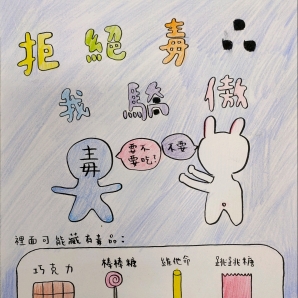 拒絕毒品
我驕傲
毒
要不要吃!
不要
裡面可能藏有毒品:
巧克力 棒棒糖 維他命 跳跳糖